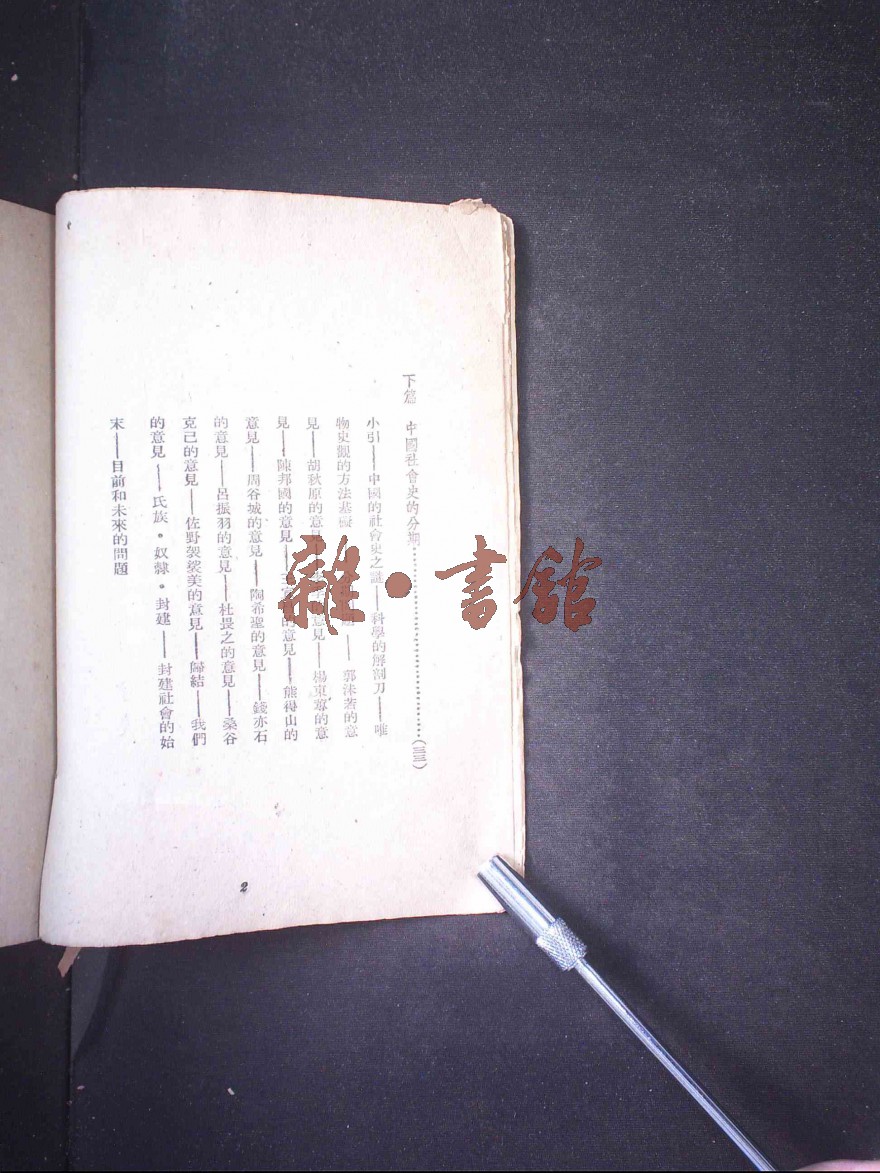 下篇 中國社會史的分期……………………(三三)
小引——中國的社會史之謎——科學的解剖刀——唯
物史觀的方法基礎 —— 郭沫若的意
見——胡秋原的意見 的意見——楊東蓴的意
見——陳邦國的意見 的意見——熊得山的
意見——周谷城的意見——陶希聖的意見——錢亦石
的意見——呂振羽的意見——杜畏之的意見——桑谷
克己的意見——佐野袈裟美的意見——歸結——我們
的意見——氏族。奴隸。封建——封建社會的始
末——目前和未來的問題
2
雜·書館